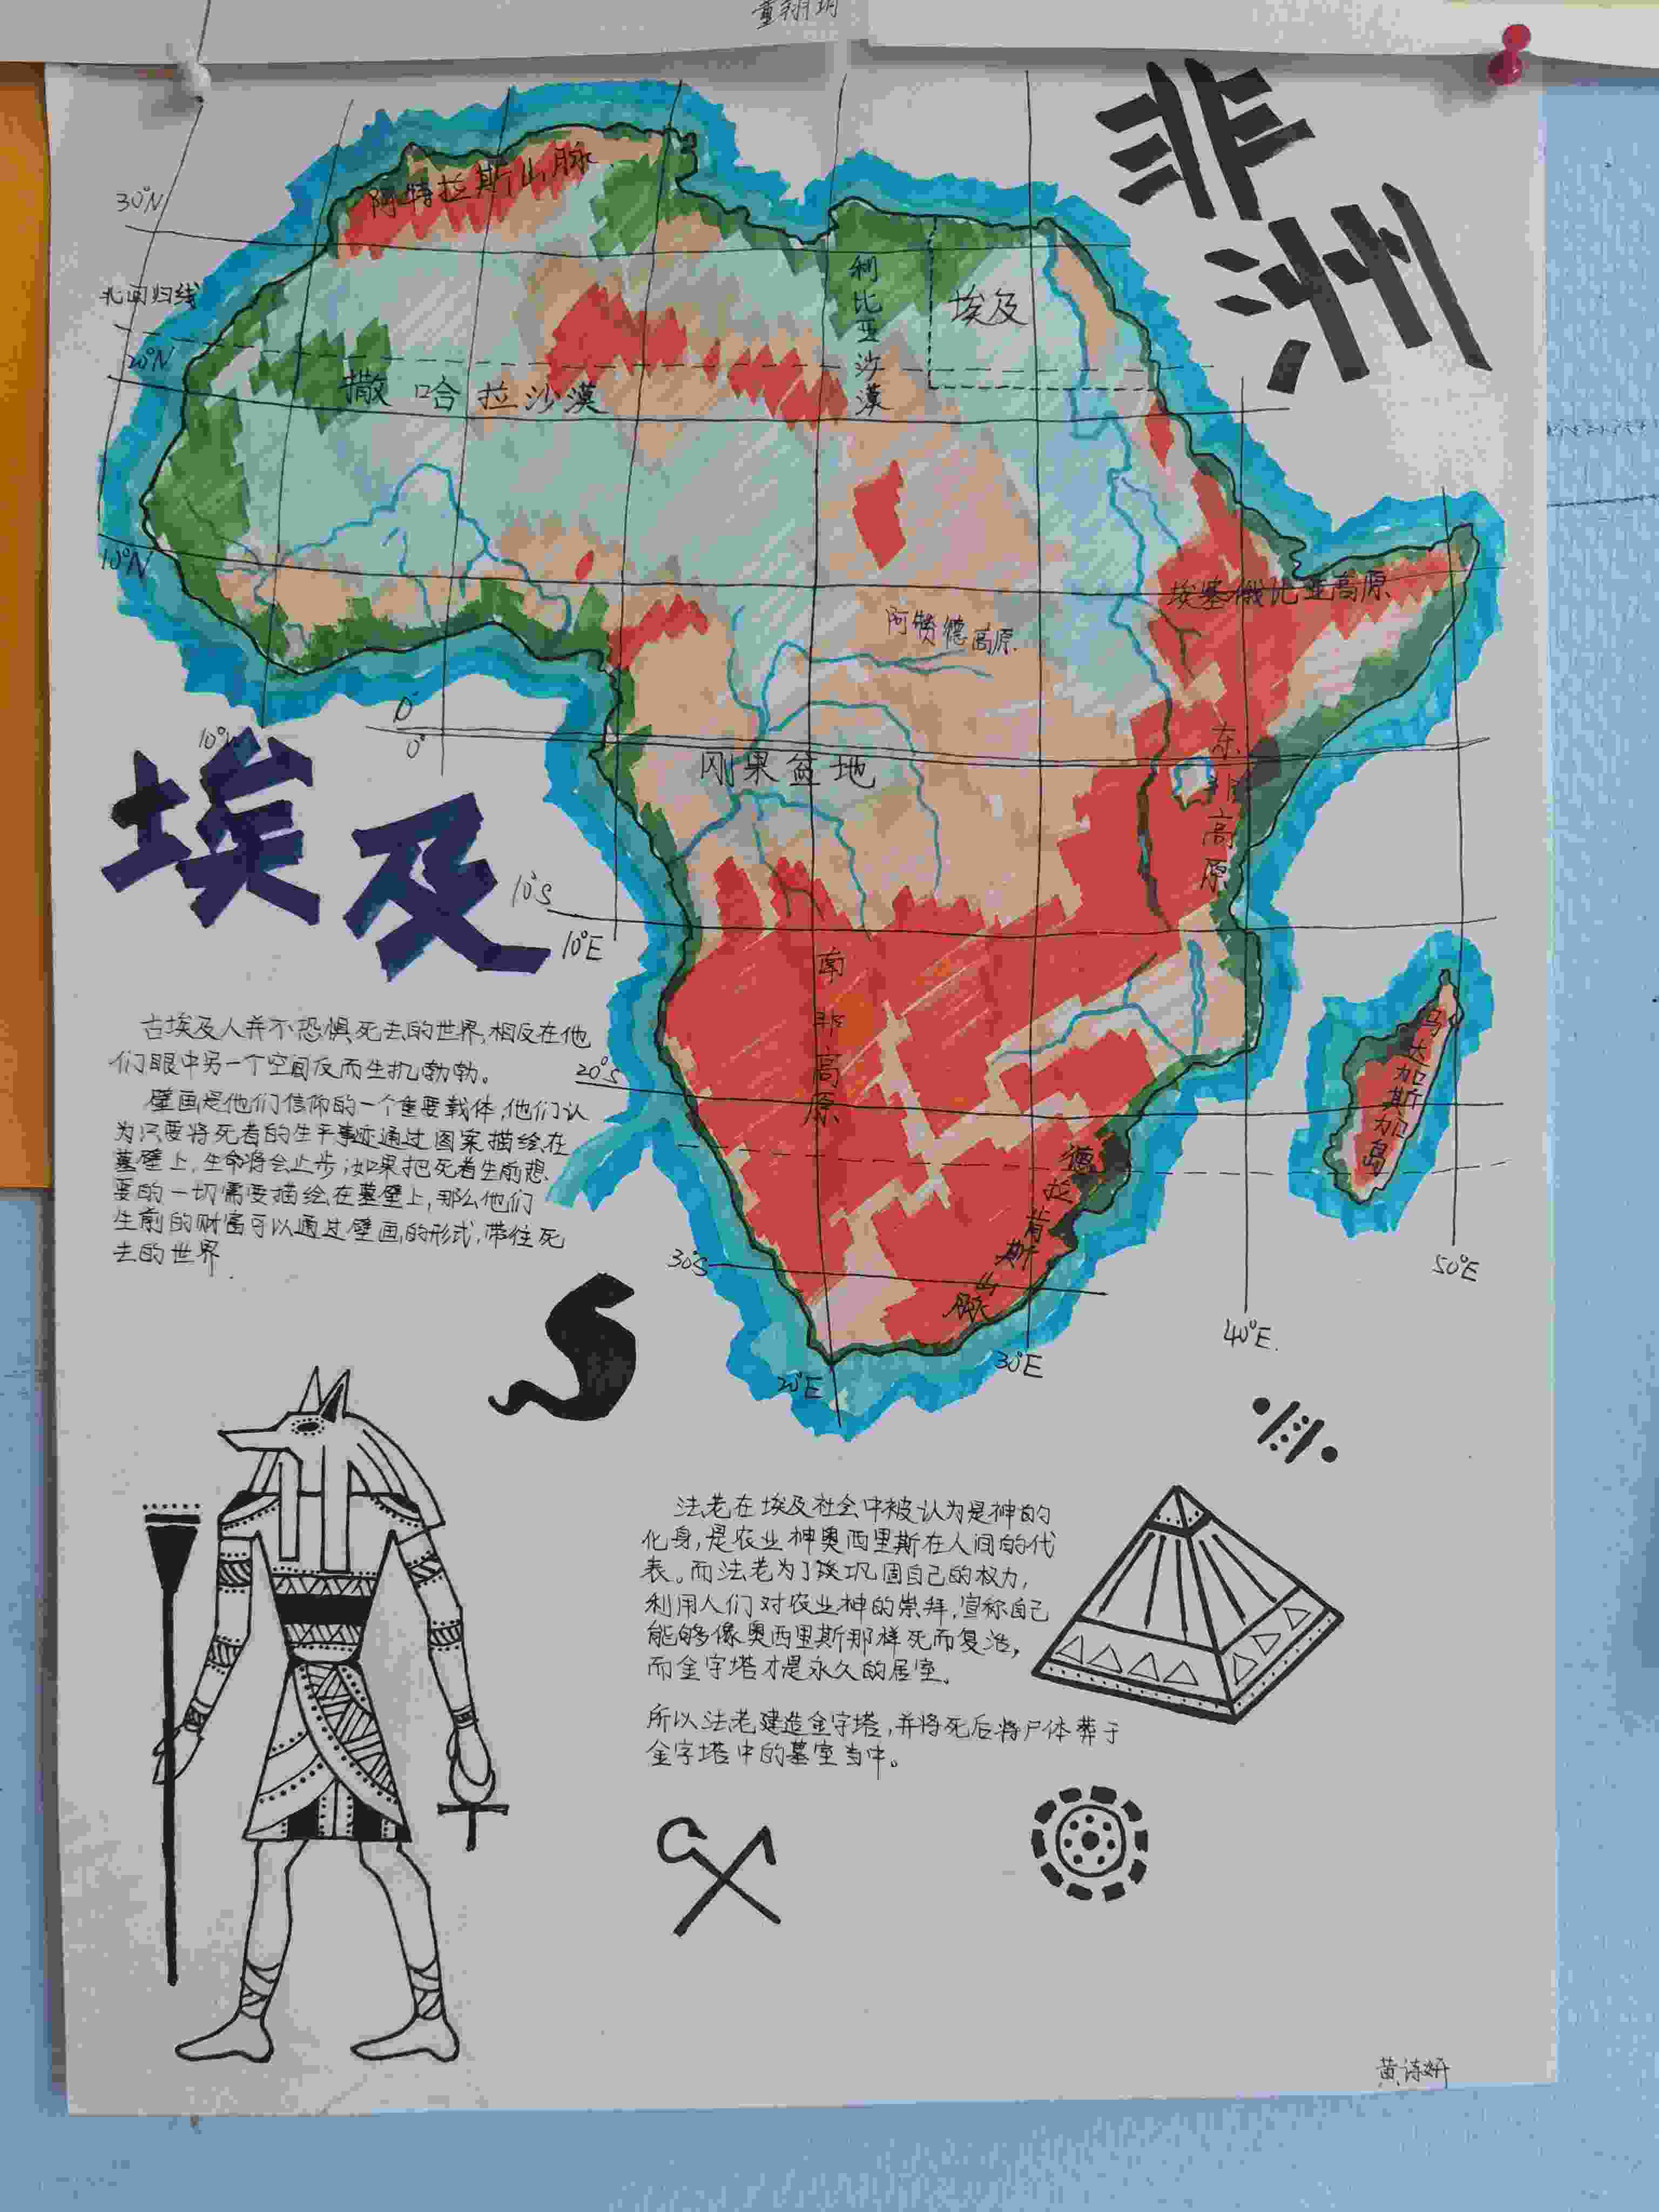 非洲
30°N
阿特拉斯山脉
北回归线
利比亚沙漠
埃及
20°N
撒哈拉沙漠
10°N
埃塞俄比亚高原
阿赞德高原
0°
0°
10°W
刚果盆地
东非高原
埃及
10°S
10°E
南非高原
马达加斯加岛
20°S
德拉肯斯山脉
30°S
20°E
30°E
40°E
50°E
古埃及人并不恐惧死去的世界,相反在他
们眼中另一个空间反而生机勃勃。
壁画是他们信仰的一个重要载体,他们认
为只要将死者的生平事迹通过图案描绘在
墓壁上,生命将会止步;如果把死者生前想
要的一切需要描绘在墓壁上,那么他们
生前的财富可以通过壁画的形式,带往死
去的世界.
法老在埃及社会中被认为是神的
化身,是农业神奥西里斯在人间的代
表。而法老为了巩固自己的权力,
利用人们对农业神的崇拜,宣称自己
能够像奥西里斯那样死而复活,
而金字塔才是永久的居室.
所以法老建造金字塔,并将死后将尸体葬于
金字塔中的墓室当中。
黄诗妍